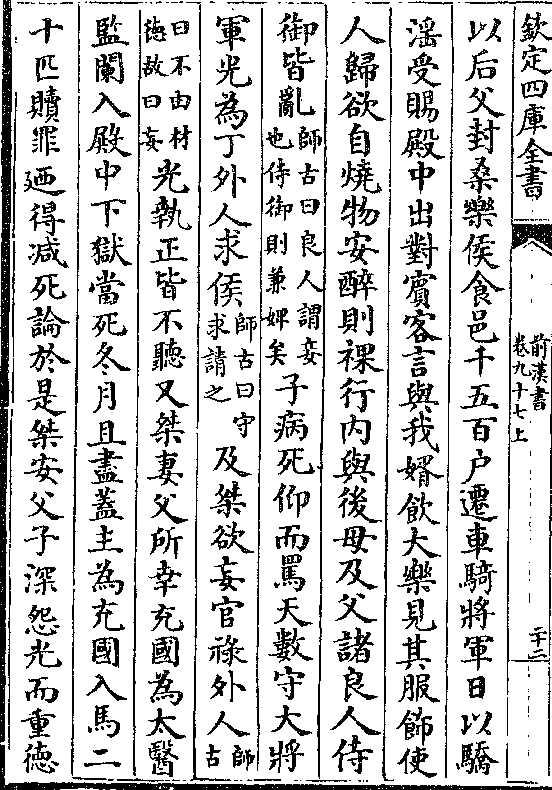 欽定四庫全書
前漢書
卷九十七上
二十二
以后父封桑樂侯食邑千五百户遷車騎將軍日以驕
淫受賜殿中出對賓客言與我壻飲大樂見其服飾使
人歸欲自燒物安醉則裸行内與後母及父諸良人侍
御皆亂師古曰良人謂妾也侍御則兼婢矣子病死仰而罵天數守大將
軍光為丁外人求侯師古曰守求請之及桀欲妄官祿外人師古
曰不由材德故曰妄光執正皆不聽又桀妻父所幸充國為太醫
監闌入殿中下獄當死冬月且盡蓋主為充國入馬二
十匹贖罪廼得減死論於是桀安父子深怨光而重德